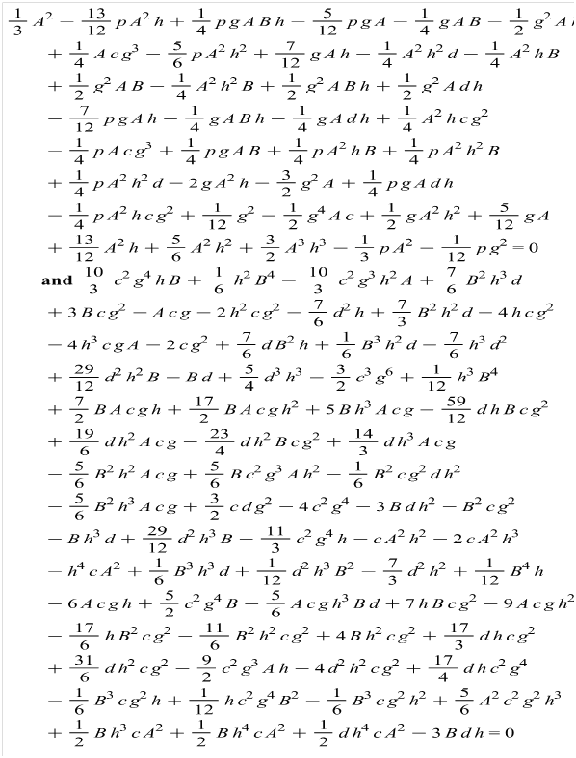 1/3 A² − 13/12 p A² h + 1/4 p g A B h − 5/12 p g A − 1/4 g A B − 1/2 g² A
+ 1/4 A c g³ − 5/6 p A² h² + 7/12 g A h − 1/4 A² h² d − 1/4 A² h B
+ 1/2 g² A B − 1/4 A² h² B + 1/2 g² A B h + 1/2 g² A d h
− 7/12 p g A h − 1/4 g A B h − 1/4 g A d h + 1/4 A² h c g²
− 1/4 p A c g³ + 1/4 p g A B + 1/4 p A² h B + 1/4 p A² h² B
+ 1/4 p A² h² d − 2 g A² h − 3/2 g² A + 1/4 p g A d h
− 1/4 p A² h c g² + 1/12 g² − 1/2 g⁴ A c + 1/2 g A² h² + 5/12 g A
+ 13/12 A² h + 5/6 A² h² + 3/2 A³ h³ − 1/3 p A² − 1/12 p g² = 0
and 10/3 c² g⁴ h B + 1/6 h² B⁴ − 10/3 c² g³ h² A + 7/6 B² h³ d
+ 3 B c g² − A c g − 2 h² c g² − 7/6 d² h + 7/3 B² h² d − 4 h c g²
− 4 h³ c g A − 2 c g² + 7/6 d B² h + 1/6 B³ h² d − 7/6 h³ d²
+ 29/12 d² h² B − B d + 5/4 d³ h³ − 3/2 c³ g⁶ + 1/12 h³ B⁴
+ 7/2 B A c g h + 17/2 B A c g h² + 5 B h³ A c g − 59/12 d h B c g²
+ 19/6 d h² A c g − 23/4 d h² B c g² + 14/3 d h³ A c g
− 5/6 B² h² A c g + 5/6 B c² g³ A h² − 1/6 B² c g² d h²
− 5/6 B² h³ A c g + 3/2 c d g² − 4 c² g⁴ − 3 B d h² − B² c g²
− B h³ d + 29/12 d² h³ B − 11/3 c² g⁴ h − c A² h² − 2 c A² h³
− h⁴ c A² + 1/6 B³ h³ d + 1/12 d² h³ B² − 7/3 d² h² + 1/12 B⁴ h
− 6 A c g h + 5/2 c² g⁴ B − 5/6 A c g h³ B d + 7 h B c g² − 9 A c g h²
− 17/6 h B² c g² − 11/6 B² h² c g² + 4 B h² c g² + 17/3 d h c g²
+ 31/6 d h² c g² − 9/2 c² g³ A h − 4 d² h² c g² + 17/4 d h c² g⁴
− 1/6 B³ c g² h + 1/12 h c² g⁴ B² − 1/6 B³ c g² h² + 5/6 A² c² g² h³
+ 1/2 B h³ c A² + 1/2 B h⁴ c A² + 1/2 d h⁴ c A² − 3 B d h = 0